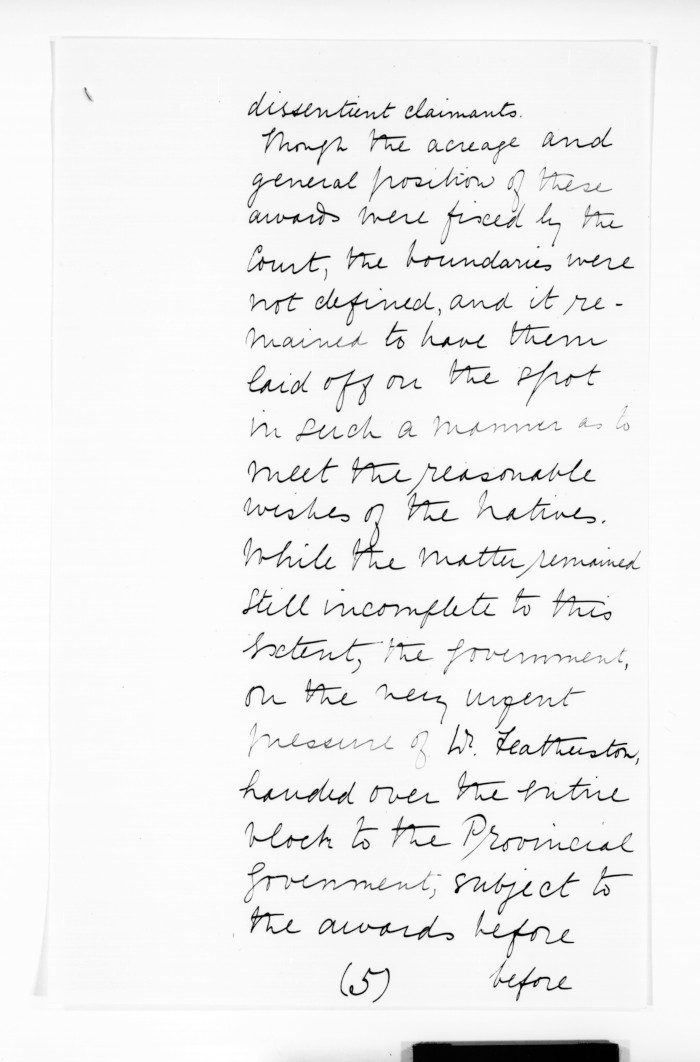 dissentient claimants.
Though the acreage and
general position of these
awards were fixed by the
Court, the boundaries were
not defined, and it re-
mained to have them
laid off on the spot
in such a manner as to
meet the reasonable
wishes of the Natives.
While the matter remained
still incomplete to this
extent, the Government,
on the very urgent
pressure of Dr. Featherston,
handed over the entire
block to the Provincial
Government, subject to
the awards before
(5) before